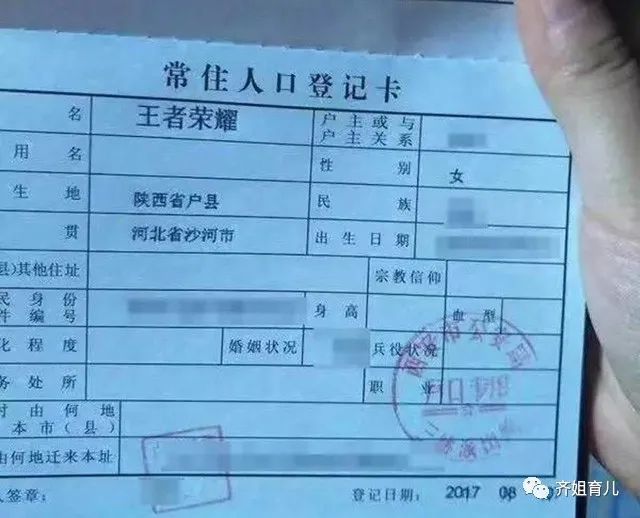 常住人口登记卡
名 王者荣耀 户主或与户主关系
用名 性别 女
生地 陕西省户县 民族
贯 河北省沙河市 出生日期
县)其他住址 宗教信仰
民身份 身高 血型
件编号
化程度 婚姻状况 兵役状况
务处所 职业
时由何地
本市(县)
由何地迁来本址
人签章: 登记日期: 2017 08
齐姐育儿